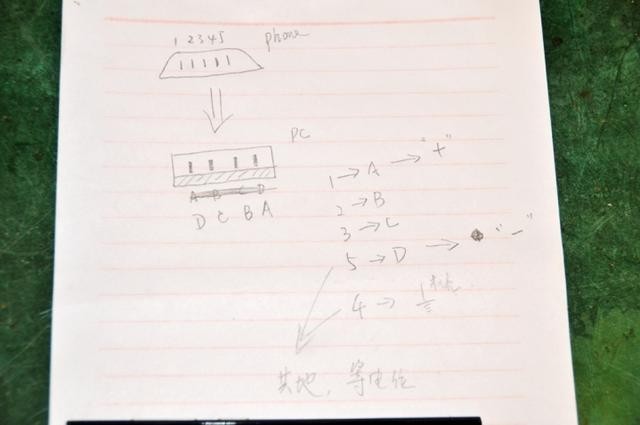 1 2 3 4 5 phone
PC
A B C D
D C B A
1 → A → "+"
2 → B
3 → C
5 → D → "-"
4 →
共地，等电位